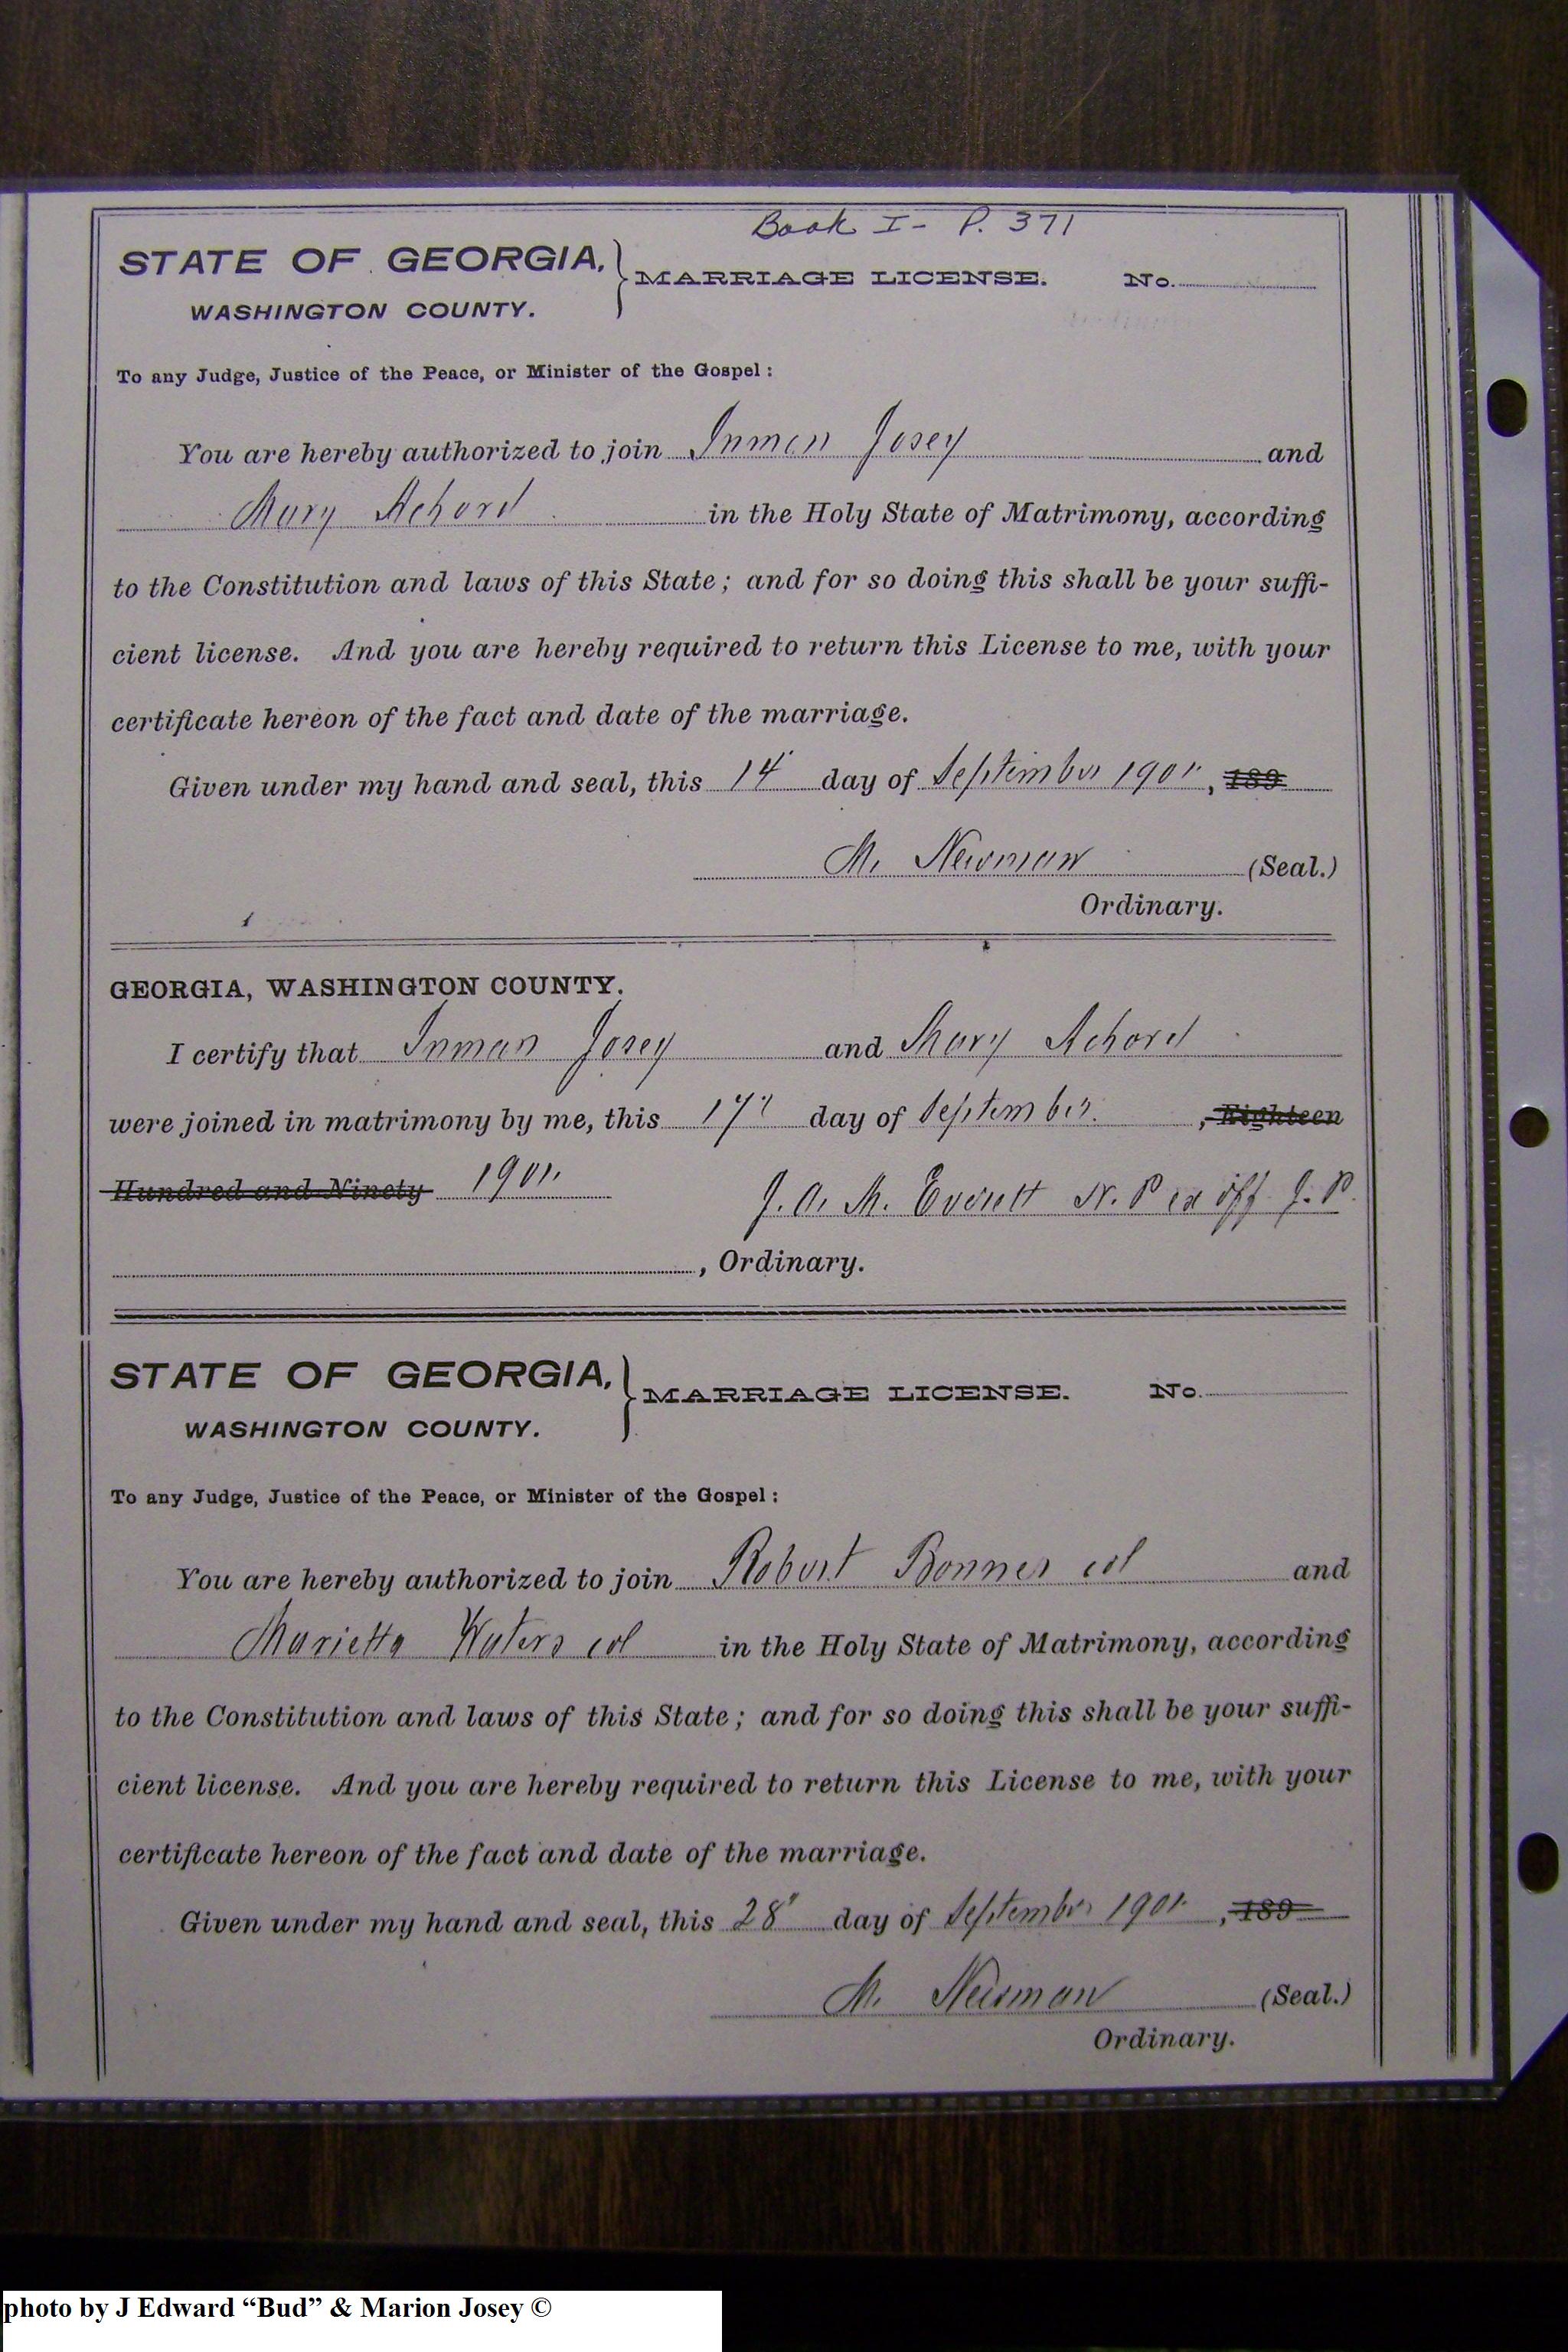 Book I - P. 371
STATE OF GEORGIA, } MARRIAGE LICENSE. No.
WASHINGTON COUNTY.
To any Judge, Justice of the Peace, or Minister of the Gospel:
You are hereby authorized to join Inman Josey and
Mary Achord in the Holy State of Matrimony, according
to the Constitution and laws of this State; and for so doing this shall be your suffi-
cient license. And you are hereby required to return this License to me, with your
certificate hereon of the fact and date of the marriage.
Given under my hand and seal, this 14" day of September 1901, 189
M. Newman (Seal.)
Ordinary.
GEORGIA, WASHINGTON COUNTY.
I certify that Inman Josey and Mary Achord
were joined in matrimony by me, this 17" day of September, Eighteen
Hundred and Ninety 1901.
J. A. M. Everett N. P ex off J. P.
, Ordinary.
STATE OF GEORGIA, } MARRIAGE LICENSE. No.
WASHINGTON COUNTY.
To any Judge, Justice of the Peace, or Minister of the Gospel:
You are hereby authorized to join Robert Bonner col and
Marietta Waters col in the Holy State of Matrimony, according
to the Constitution and laws of this State; and for so doing this shall be your suffi-
cient license. And you are hereby required to return this License to me, with your
certificate hereon of the fact and date of the marriage.
Given under my hand and seal, this 28" day of September 1901, 189
M. Newman (Seal.)
Ordinary.
photo by J Edward “Bud” & Marion Josey ©